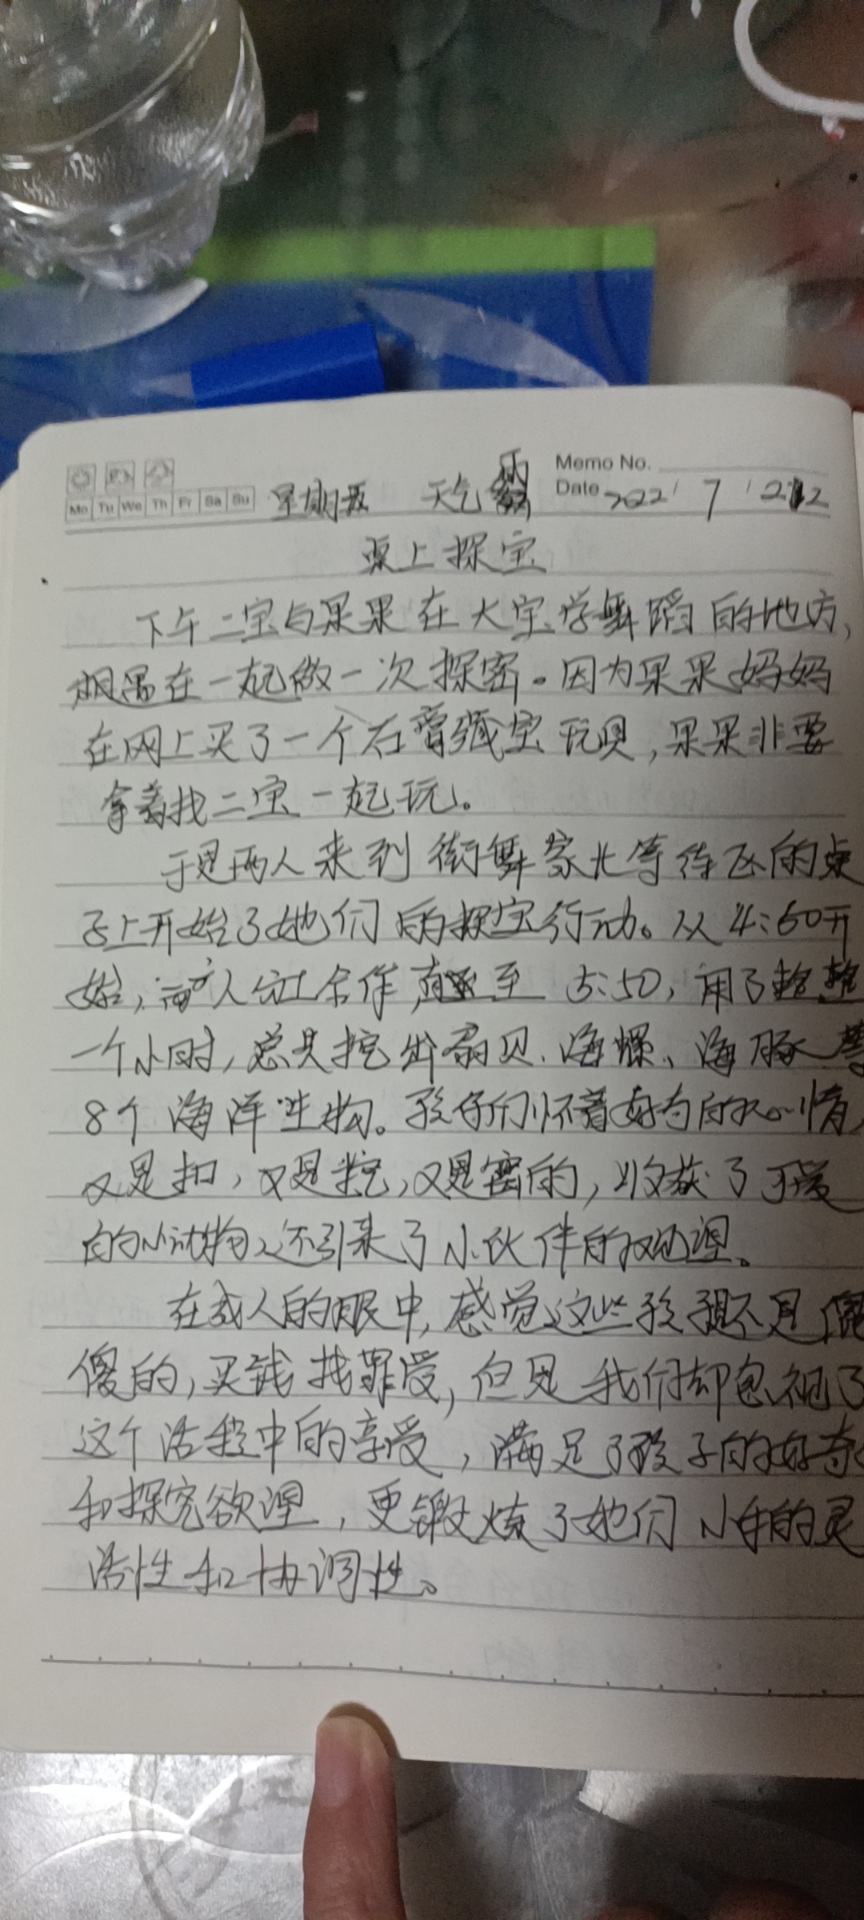 Memo No.
Mo Tu We Th Fr Sa Su 星期五 天气 雨 Date 2022 7 22
桌上探宝
下午二宝与果果在大宝学舞蹈的地方,
相居在一起做一次探密。因为果果妈妈
在网上买了一个石膏藏宝玩具,果果非要
拿着找二宝一起玩。
于是两人来到街舞家长等待区的桌
子上开始了她们的探宝行动。从4:50开
始,两人分工合作,直至5:50,用了整整
一个小时,总共挖出扇贝、海螺、海豚等
8个海洋生物。孩子们怀着好奇的心情,
又是扣,又是挖,又是凿的,收获了可爱
的小动物,还引来了小伙伴的观望。
在成人的眼中,感觉这些孩子不是傻
傻的,买钱找罪受,但是我们却忽视了
这个活动中的享受,满足了孩子的好奇
和探究欲望,更锻炼了她们小手的灵
活性和协调性。